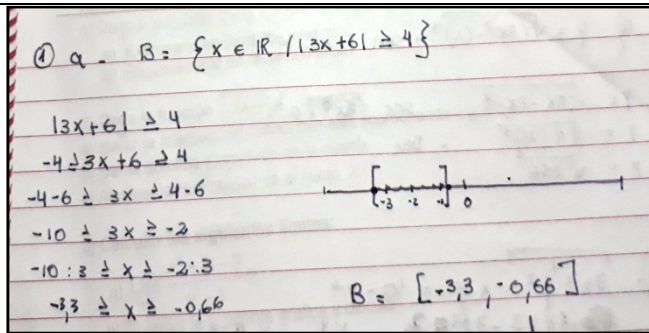 ① a - B = { x ∈ ℝ / |3x+6| ≥ 4 }
|3x+6| ≥ 4
-4 ≥ 3x+6 ≥ 4
-4-6 ≥ 3x ≥ 4-6
-10 ≥ 3x ≥ -2
-10:3 ≥ x ≥ -2:3
-3,3 ≥ x ≥ -0,66
[ -3 -2 -1 ] 0
B = [-3,3 , -0,66]